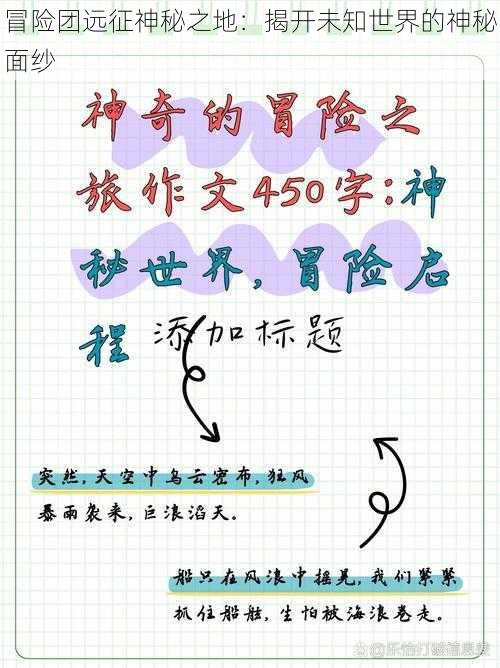 冒险团远征神秘之地：揭开未知世界的神秘
面纱
神奇的冒险之
旅作文450字:神
秘世界,冒险启
程 添加标题
突然,天空中乌云密布,狂风
暴雨袭来,巨浪滔天。
船只在风浪中摇晃,我们紧紧
抓住船舷,生怕被海浪卷走。